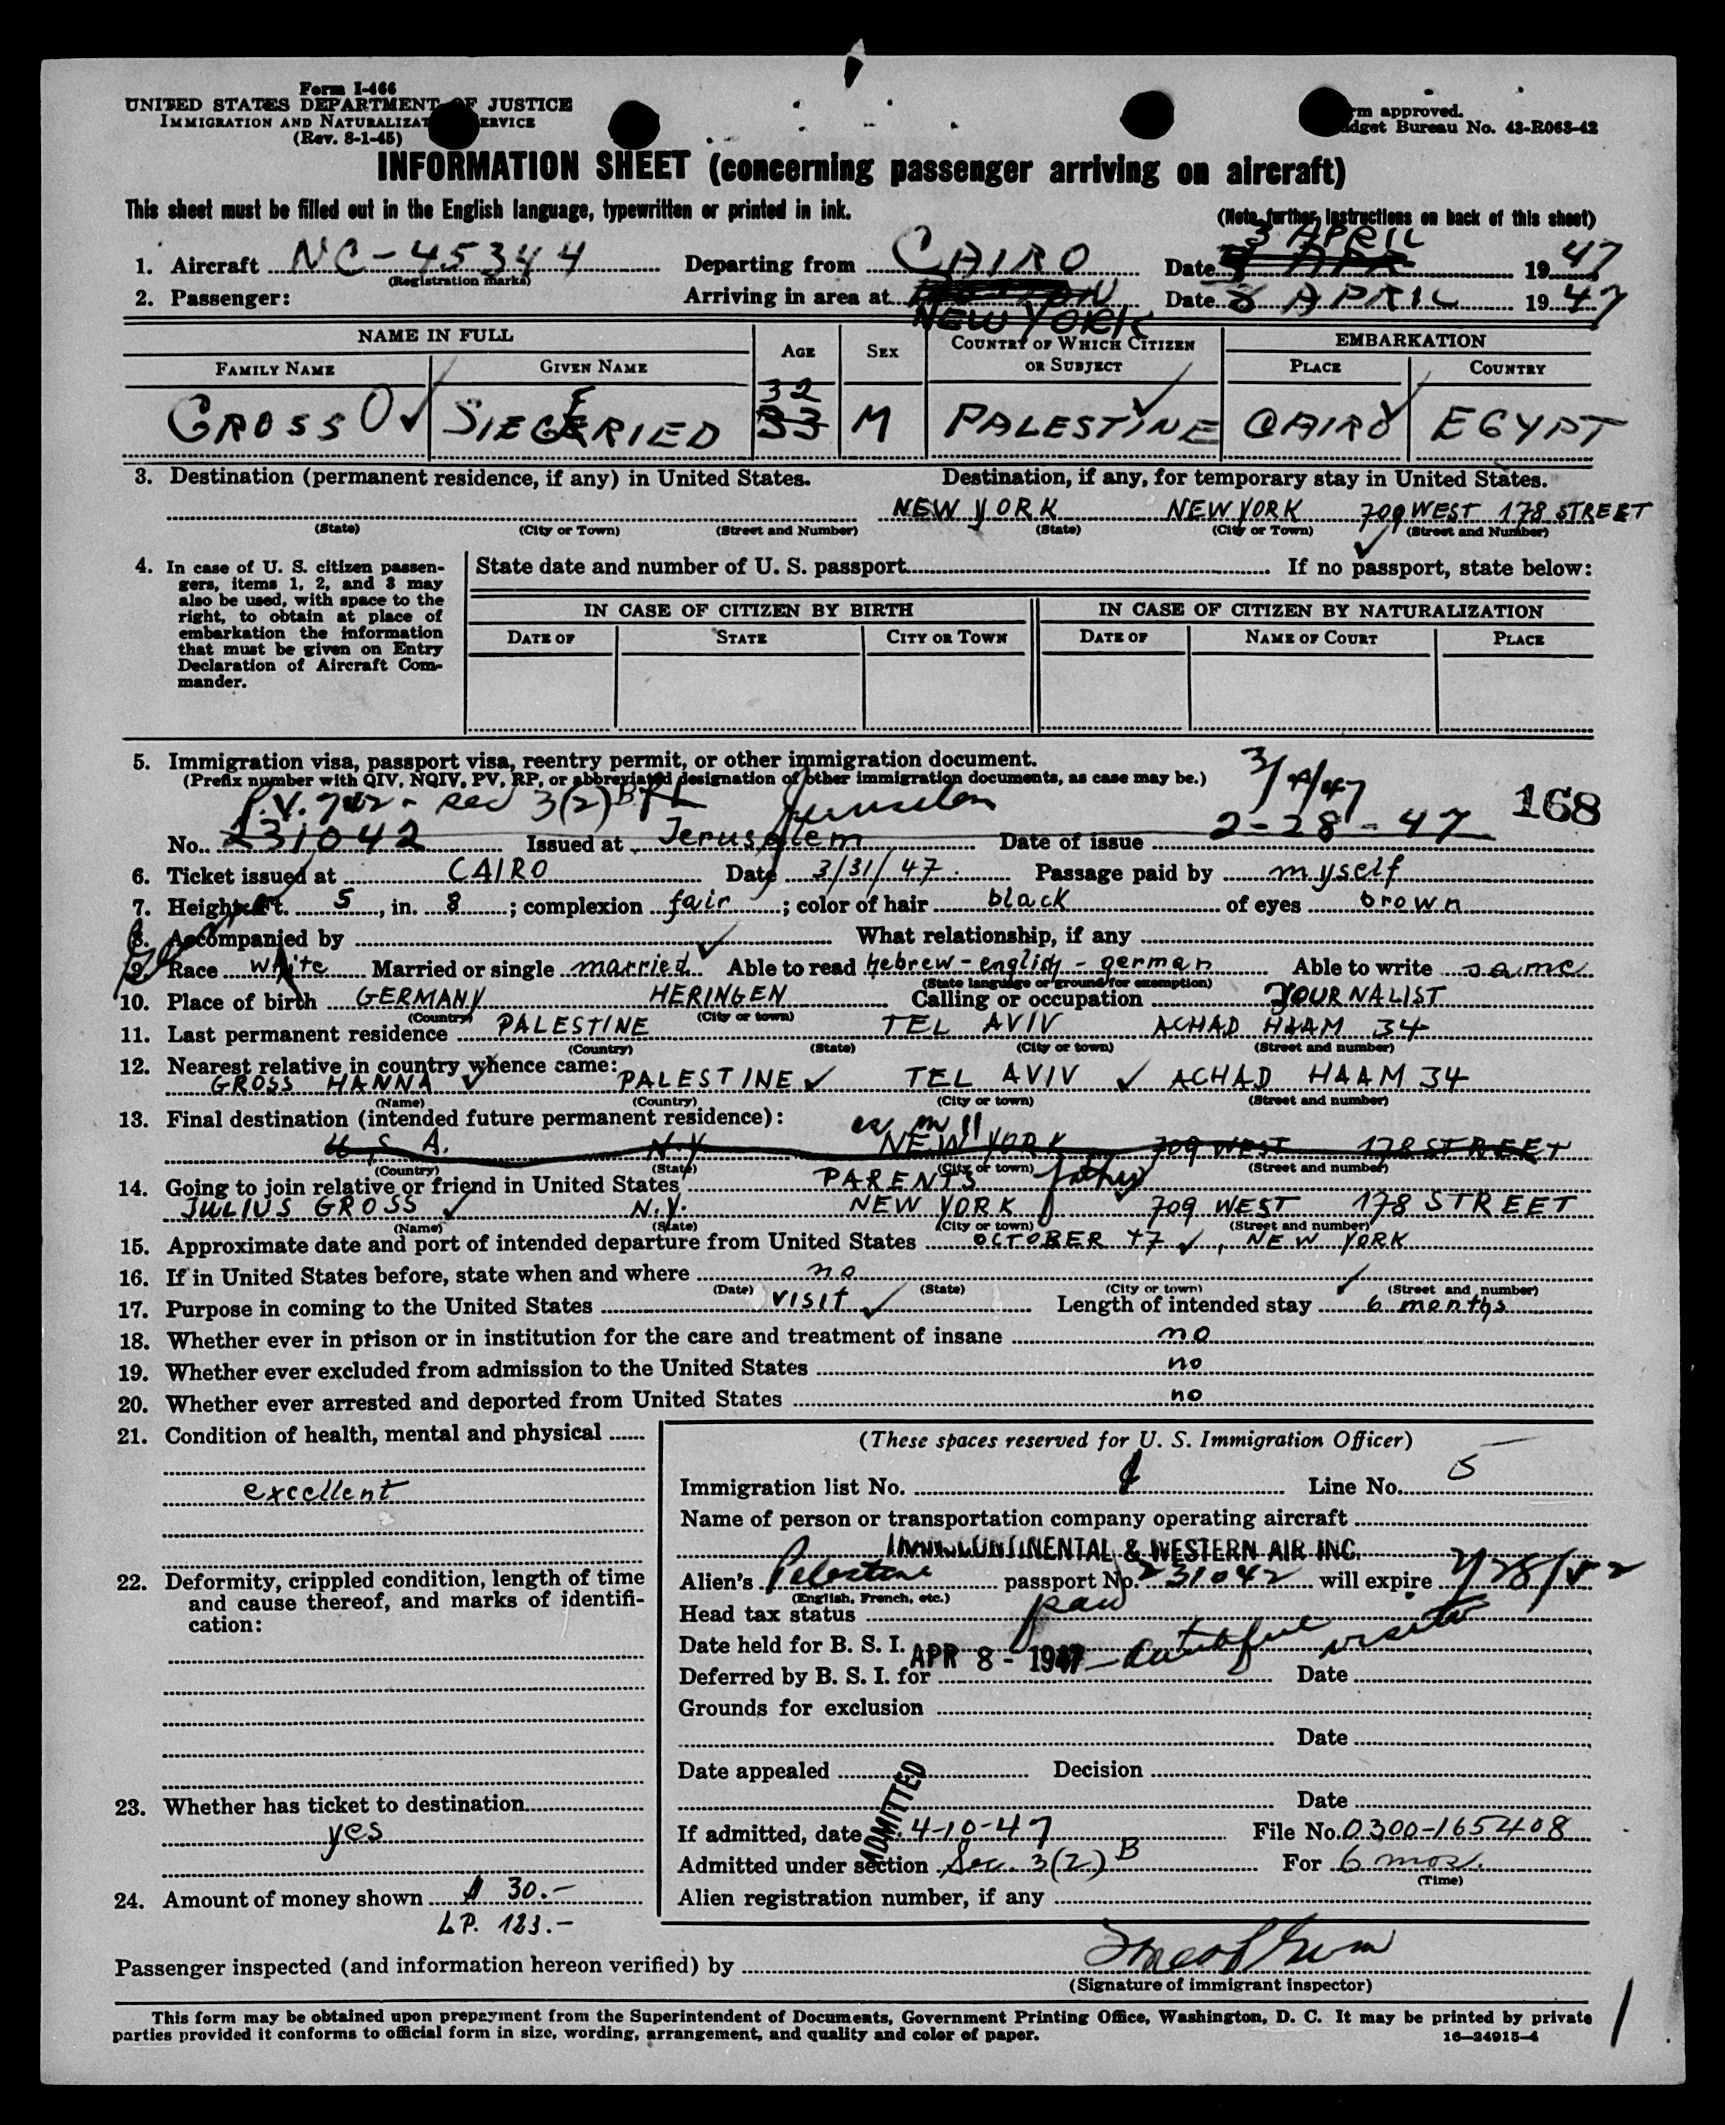 Form I-466
UNITED STATES DEPARTMENT OF JUSTICE
IMMIGRATION AND NATURALIZAT ERVICE
(Rev. 8-1-45)
rm approved.
dget Bureau No. 43-R063-42
INFORMATION SHEET (concerning passenger arriving on aircraft)
This sheet must be filled out in the English language, typewritten or printed in ink.
(Note further instructions on back of this sheet)
3 APRIL
1. Aircraft NC-45344 Departing from CAIRO Date 1947
(Registration marks)
2. Passenger: Arriving in area at Date 8 APRIL 1947
NEW YORK
NAME IN FULL AGE SEX COUNTRY OF WHICH CITIZEN OR SUBJECT EMBARKATION
FAMILY NAME GIVEN NAME PLACE COUNTRY
32
GROSS SIEGFRIED 33 M PALESTINE CAIRO EGYPT
3. Destination (permanent residence, if any) in United States. Destination, if any, for temporary stay in United States.
NEW YORK NEW YORK 709 WEST 178 STREET
(State) (City or Town) (Street and Number) (State) (City or Town) (Street and Number)
4. In case of U. S. citizen passen-
gers, items 1, 2, and 3 may
also be used, with space to the
right, to obtain at place of
embarkation the information
that must be given on Entry
Declaration of Aircraft Com-
mander.
State date and number of U. S. passport If no passport, state below:
IN CASE OF CITIZEN BY BIRTH IN CASE OF CITIZEN BY NATURALIZATION
DATE OF STATE CITY OR TOWN DATE OF NAME OF COURT PLACE
5. Immigration visa, passport visa, reentry permit, or other immigration document.
(Prefix number with QIV, NQIV, PV, RP, or abbreviated designation of other immigration documents, as case may be.)
P.V. 3(2)B Jerusalem 3/4/47 168
No. 231042 Issued at Jerusalem Date of issue 2-28-47
6. Ticket issued at CAIRO Date 3/31/47. Passage paid by myself
7. Height, ft. 5, in. 8; complexion fair; color of hair black of eyes brown
8. Accompanied by What relationship, if any
9. Race white Married or single married Able to read hebrew-english-german Able to write same
(State language or ground for exemption)
10. Place of birth GERMANY HERINGEN Calling or occupation JOURNALIST
(Country) (City or town)
11. Last permanent residence PALESTINE TEL AVIV ACHAD HAAM 34
(Country) (State) (City or town) (Street and number)
12. Nearest relative in country whence came:
GROSS HANNA PALESTINE TEL AVIV ACHAD HAAM 34
(Name) (Country) (City or town) (Street and number)
13. Final destination (intended future permanent residence):
U.S.A. N.Y. NEW YORK 709 WEST 178 STREET
(Country) (State) (City or town) (Street and number)
14. Going to join relative or friend in United States PARENTS father
JULIUS GROSS N.Y. NEW YORK 709 WEST 178 STREET
(Name) (State) (City or town) (Street and number)
15. Approximate date and port of intended departure from United States OCTOBER 47, NEW YORK
16. If in United States before, state when and where no
(Date) (State) (City or town) (Street and number)
17. Purpose in coming to the United States visit Length of intended stay 6 months
18. Whether ever in prison or in institution for the care and treatment of insane no
19. Whether ever excluded from admission to the United States no
20. Whether ever arrested and deported from United States no
21. Condition of health, mental and physical
excellent
22. Deformity, crippled condition, length of time
and cause thereof, and marks of identifi-
cation:
23. Whether has ticket to destination
yes
24. Amount of money shown $ 30.-
LP. 123.-
(These spaces reserved for U. S. Immigration Officer)
Immigration list No. 1 Line No. 5
Name of person or transportation company operating aircraft
CONTINENTAL & WESTERN AIR INC.
Alien's Palestine passport No. 231042 will expire 2/28/52
(English, French, etc.)
Head tax status
Date held for B. S. I. APR 8 - 1947
Deferred by B. S. I. for Date
Grounds for exclusion
Date
Date appealed Decision
Date
ADMITTED
If admitted, date 4-10-47 File No. 0300-165408
Admitted under section Sec. 3(2) B For 6 mos.
(Time)
Alien registration number, if any
Passenger inspected (and information hereon verified) by
(Signature of immigrant inspector)
This form may be obtained upon prepayment from the Superintendent of Documents, Government Printing Office, Washington, D. C. It may be printed by private
parties provided it conforms to official form in size, wording, arrangement, and quality and color of paper.
16-24915-4